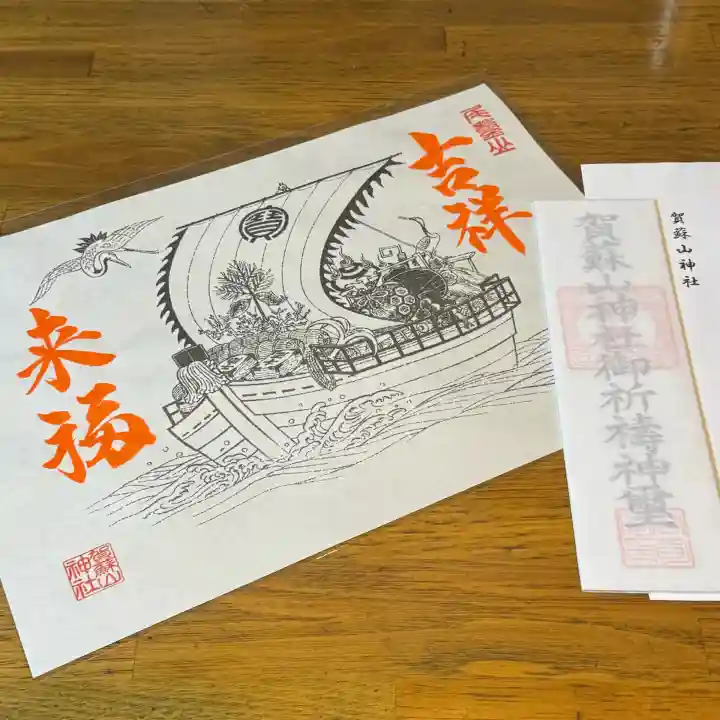 吉祥
来福
寳
賀蘇山
神社
賀蘇山神社
賀蘇山神社御祈祷神璽